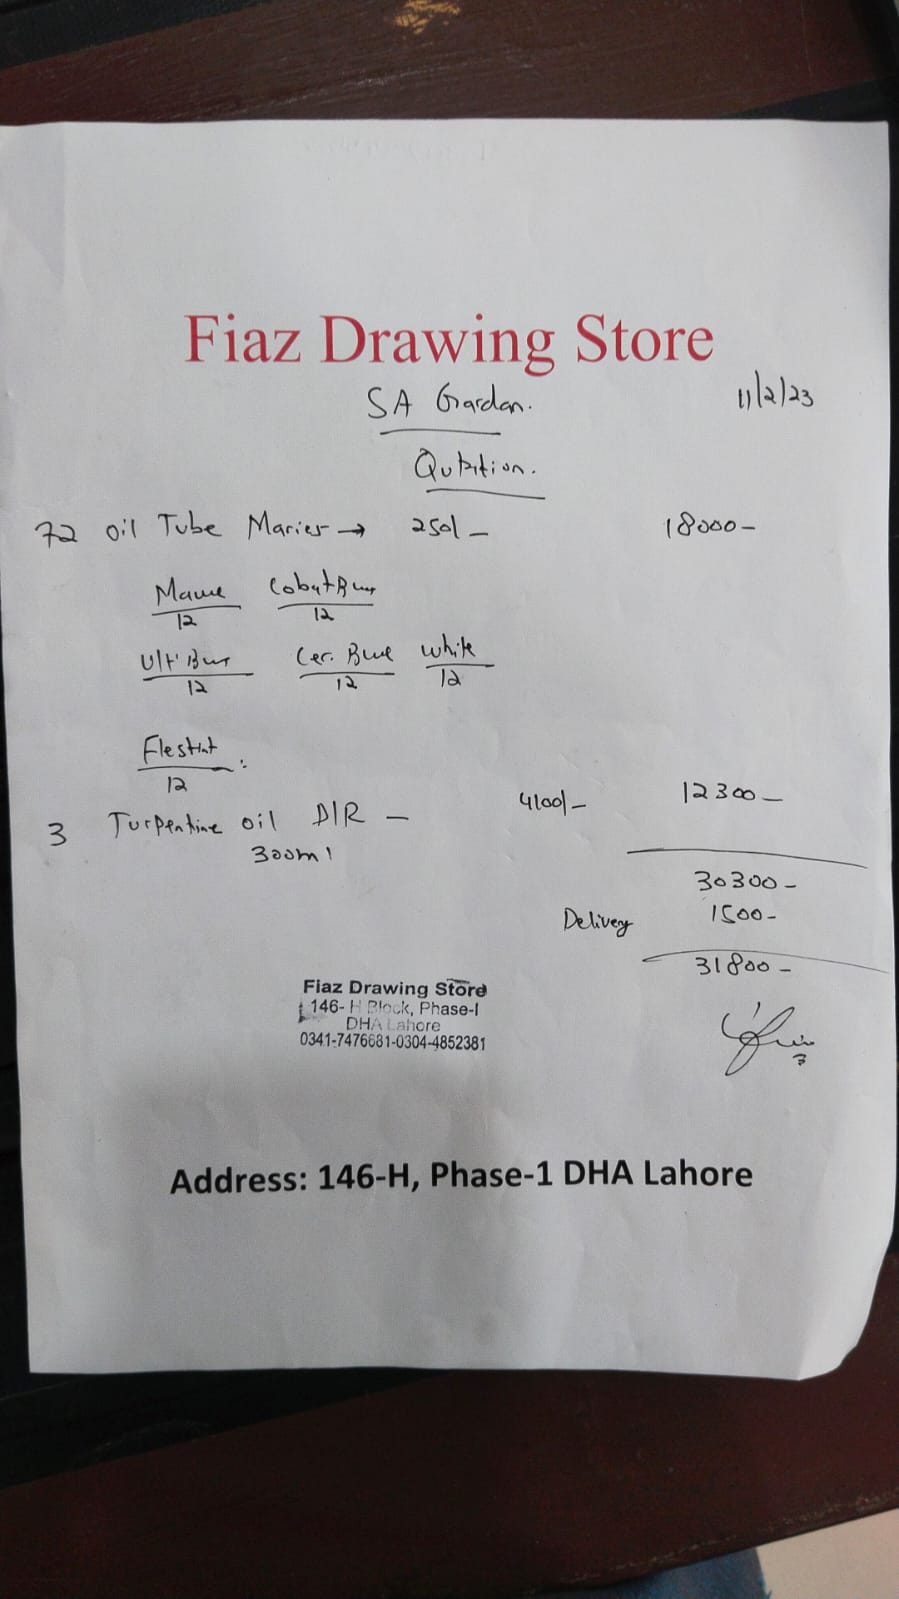 Fiaz Drawing Store
SA Gardan.
11/2/23
Qutation.
72 Oil Tube Maries → 250/- 18000-
Mauve 12 Cobalt Blue 12
Ult. Blue 12 Cer. Blue 12 White 12
Flestint 12
3 Turpentine oil DIR - 4100/- 12300-
300ml
30300-
Delivery 1500-
31800-
Fiaz Drawing Store
146- H Block, Phase-I
DHA Lahore
0341-7476681-0304-4852381
Address: 146-H, Phase-1 DHA Lahore